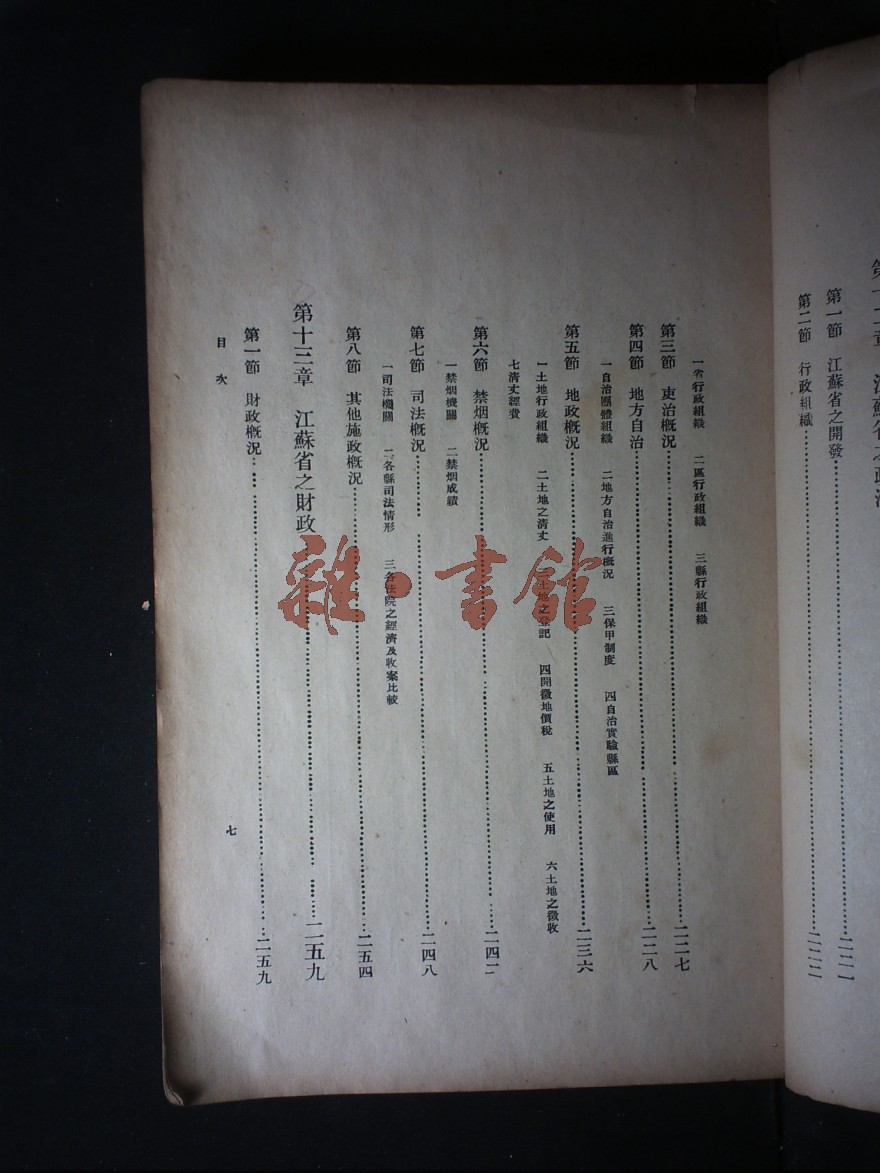 江蘇省之政治
第一節 江蘇省之開發……二二一
第二節 行政組織……二二二
一省行政組織 二區行政組織 三縣行政組織
第三節 吏治概況……二二七
第四節 地方自治……二二八
一自治團體組織 二地方自治進行概況 三保甲制度 四自治實驗縣區
第五節 地政概況……二三六
一土地行政組織 二土地之清丈 三土地之登記 四開徵地價稅 五土地之使用 六土地之徵收
七清丈經費
第六節 禁烟概況……二四二
一禁烟機關 二禁烟成績
第七節 司法概況……二四八
一司法機關 二各縣司法情形 三各法院之經濟及收案比較
第八節 其他施政概況……二五四
第十三章 江蘇省之財政……二五九
第一節 財政概況……二五九
目次
七
雜·書館